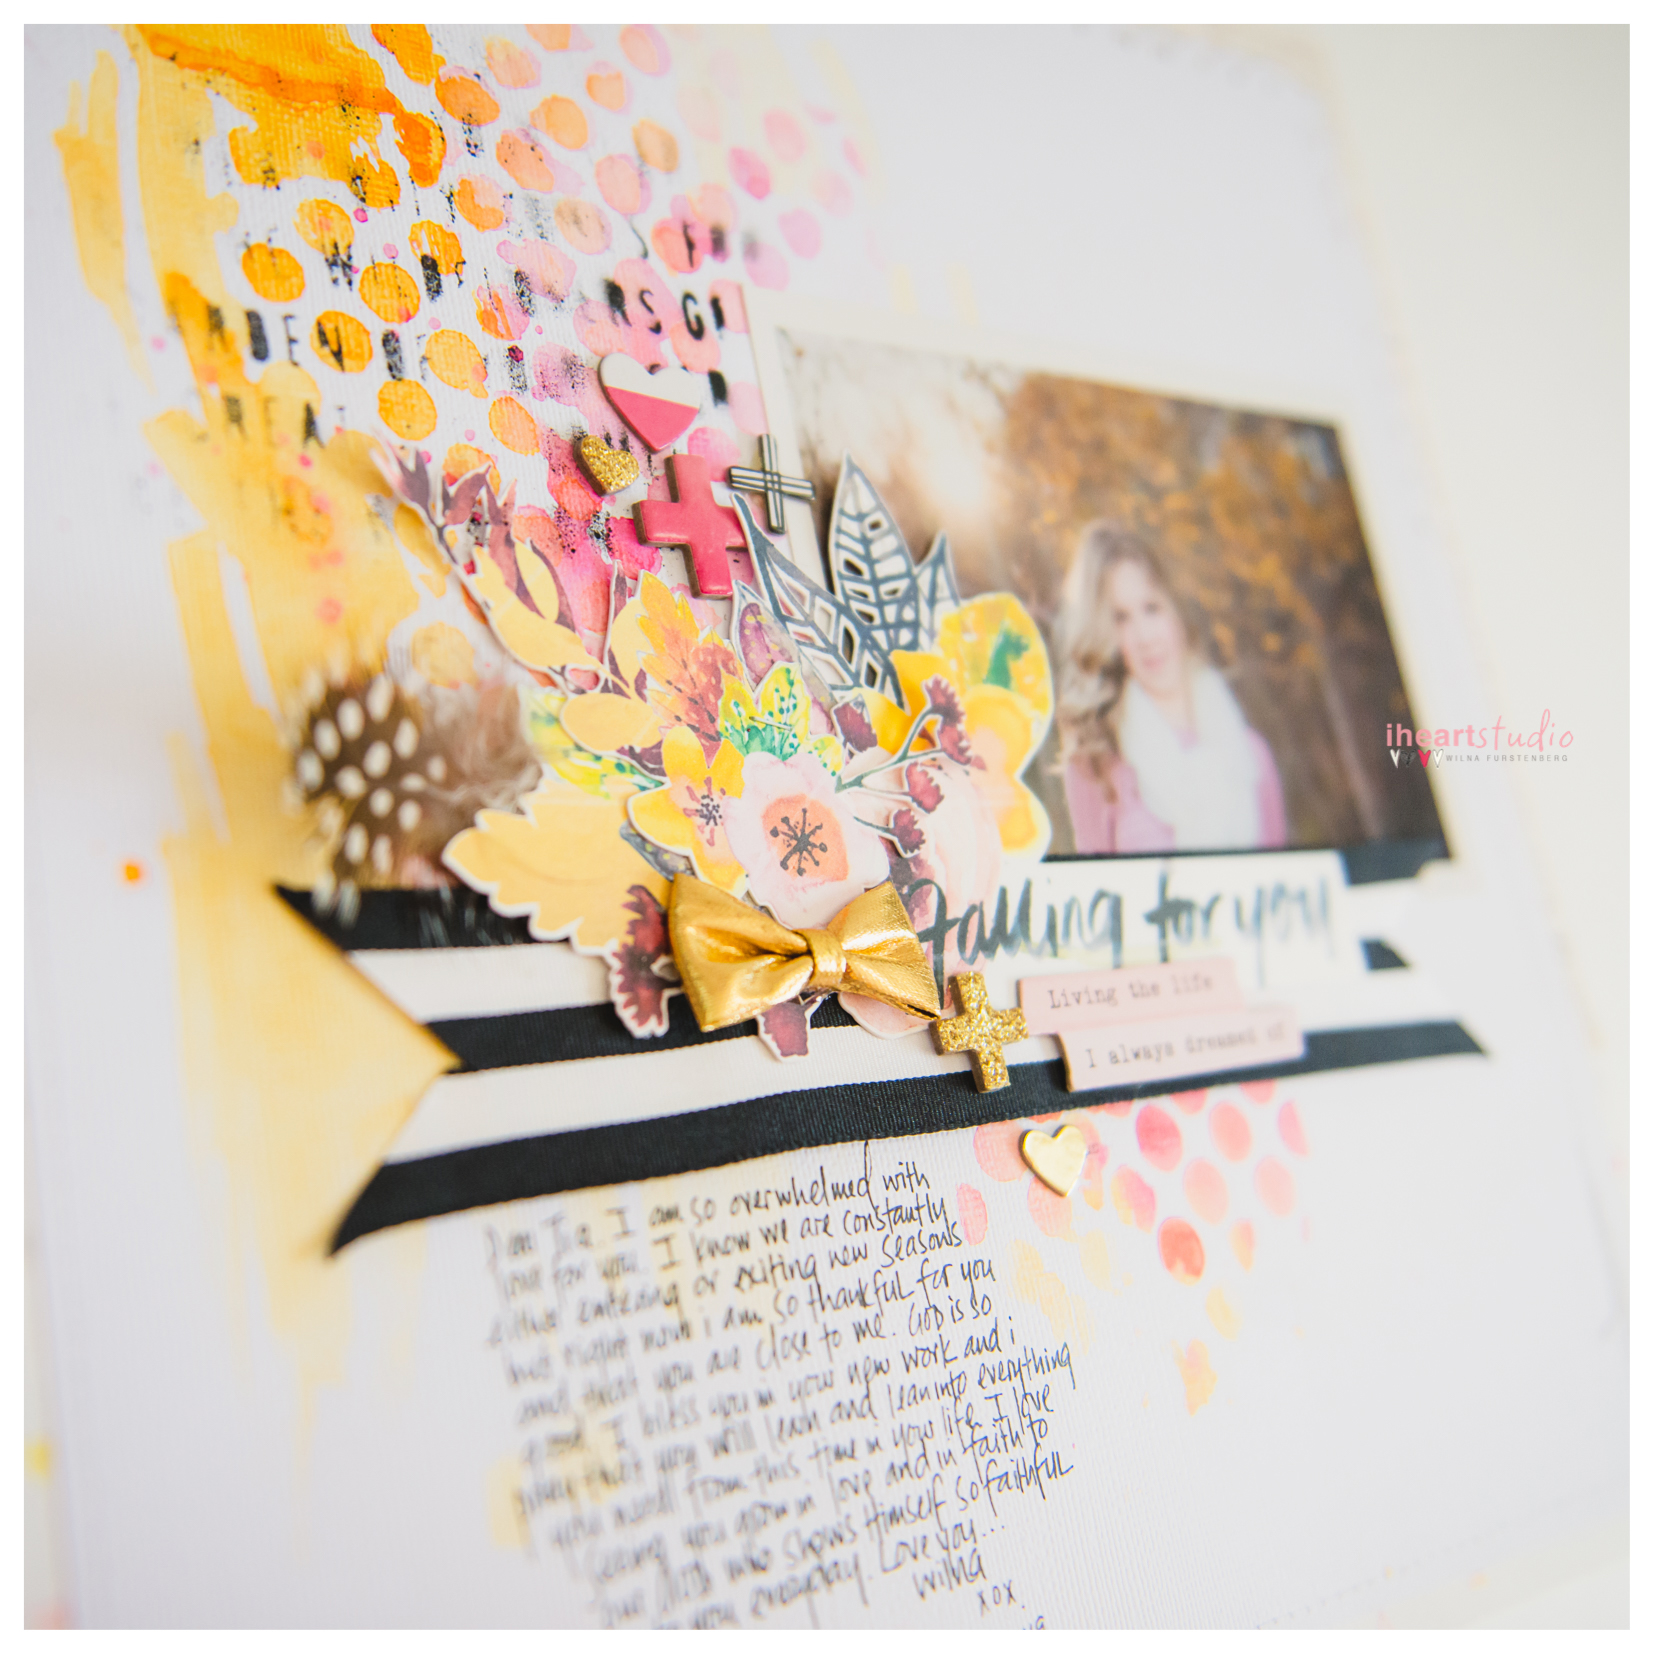 RSG
falling for you
Living the life
I always dreamed of
iheartstudio
WILNA FURSTENBERG
I am so overwhelmed with
love for you. I know we are constantly
either entering or exiting new seasons
but right now i am so thankful for you
and that you are close to me. GOD is so
good. I bless you in your new work and i
pray that you will learn and lean into everything
you need from this time in your life. I love
seeing you grow in love and in faith to
our who shows Himself so faithful
to you everyday. Love you...
wilna
xox.